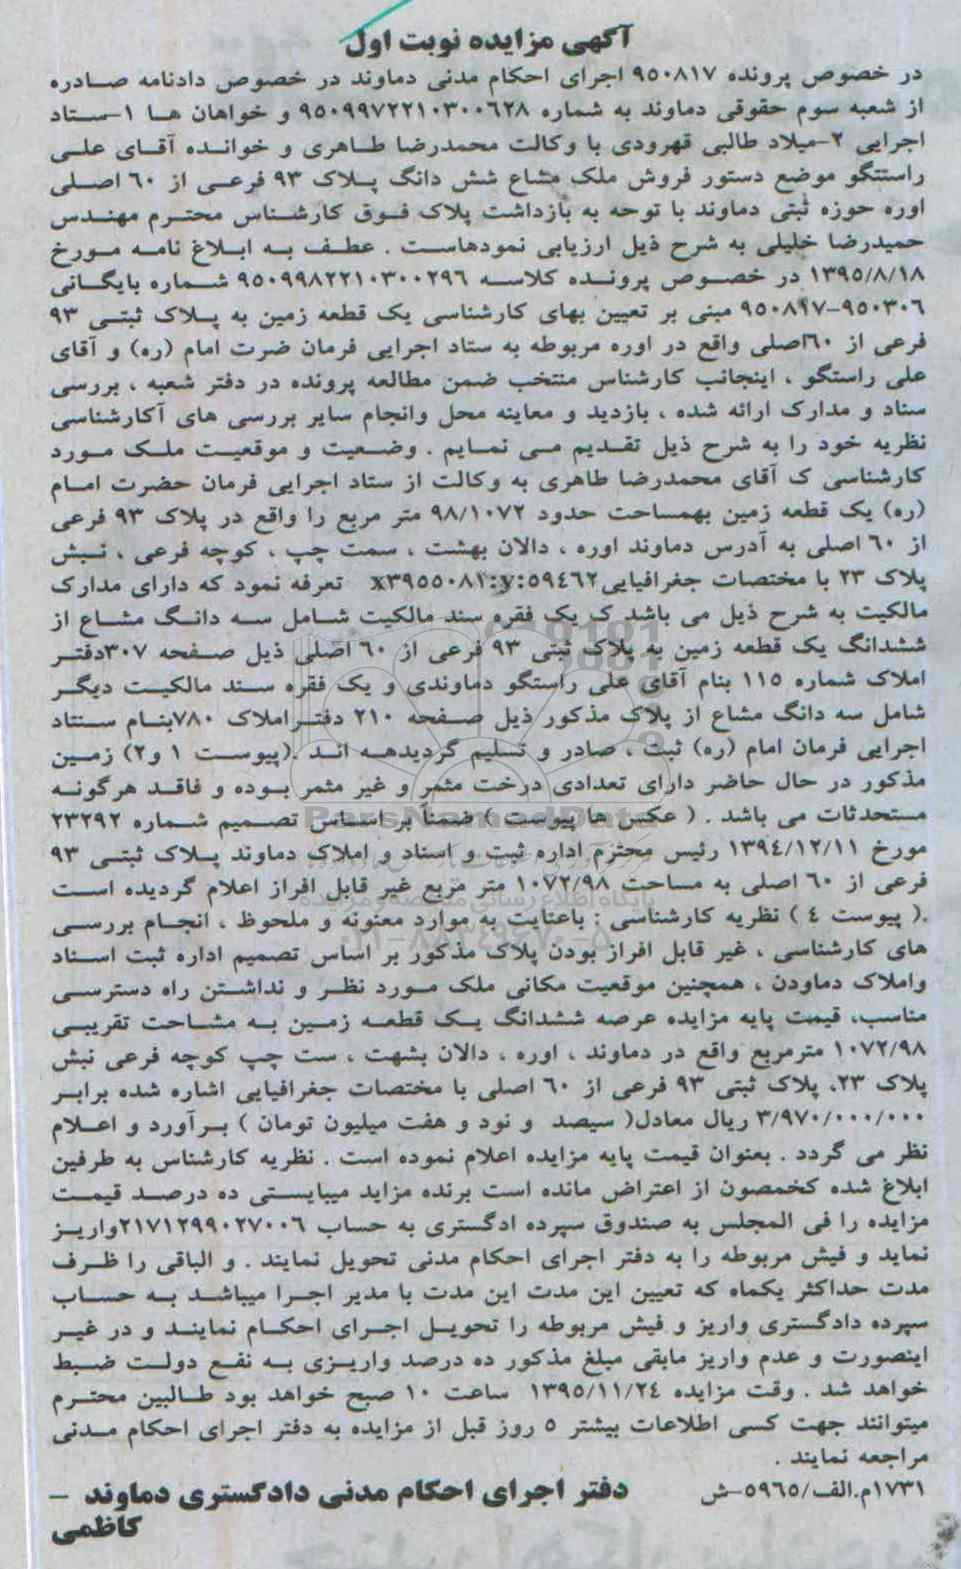 آگهی مزایده نوبت اول
در خصوص پرونده ۹۵۰۸۱۷ اجرای احکام مدنی دماوند در خصوص دادنامه صادره
از شعبه سوم حقوقی دماوند به شماره ۹۵۰۹۹۷۲۲۱۰۳۰۰۶۲۸ و خواهان ها ۱-ستاد
اجرایی ۲-میلاد طالبی قهرودی با وکالت محمدرضا طاهری و خوانده آقای علی
راستتگو موضع دستور فروش ملک مشاع شش دانگ پلاک ۹۳ فرعی از ۶۰ اصلی
اوره حوزه ثبتی دماوند با توحه به بازداشت پلاک فوق کارشناس محترم مهندس
حمیدرضا خلیلی به شرح ذیل ارزیابی نموده‌است . عطف به ابلاغ نامه مورخ
۱۳۹۵/۸/۱۸ در خصوص پرونده کلاسه ۹۵۰۹۹۸۲۲۱۰۳۰۰۲۹۶ شماره بایگانی
۹۵۰۳۰۶-۹۵۰۸۹۷ مبنی بر تعیین بهای کارشناسی یک قطعه زمین به پلاک ثبتی ۹۳
فرعی از ۶۰اصلی واقع در اوره مربوطه به ستاد اجرایی فرمان ضرت امام (ره) و آقای
علی راستگو ، اینجانب کارشناس منتخب ضمن مطالعه پرونده در دفتر شعبه ، بررسی
سناد و مدارک ارائه شده ، بازدید و معاینه محل وانجام سایر بررسی های آکارشناسی
نظریه خود را به شرح ذیل تقدیم می نمایم . وضعیت و موقعیت ملک مورد
کارشناسی ک آقای محمدرضا طاهری به وکالت از ستاد اجرایی فرمان حضرت امام
(ره) یک قطعه زمین بهمساحت حدود ۹۸/۱۰۷۲ متر مربع را واقع در پلاک ۹۳ فرعی
از ۶۰ اصلی به آدرس دماوند اوره ، دالان بهشت ، سمت چپ ، کوچه فرعی ، نبش
پلاک ۲۳ با مختصات جغرافیایی x۳۹۵۵۰۸۱:y:۵۹٤۶۲ تعرفه نمود که دارای مدارک
مالکیت به شرح ذیل می باشد ک یک فقره سند مالکیت شامل سه دانگ مشاع از
ششدانگ یک قطعه زمین به پلاک ثبتی ۹۳ فرعی از ۶۰ اصلی ذیل صفحه ۳۰۷دفتر
املاک شماره ۱۱۵ بنام آقای علی راستگو دماوندی و یک فقره سند مالکیت دیگر
شامل سه دانگ مشاع از پلاک مذکور ذیل صفحه ۲۱۰ دفتراملاک ۷۸۰بنام ستتاد
اجرایی فرمان امام (ره) ثبت ، صادر و تسلیم گردیدهه اند .(پیوست ۱ و۲) زمین
مذکور در حال حاضر دارای تعدادی درخت مثمر و غیر مثمر بوده و فاقد هرگونه
مستحدثات می باشد . ( عکس ها پیوست ) ضمناً بر اساس تصمیم شماره ۲۳۲۹۲
مورخ ۱۳۹٤/۱۲/۱۱ رئیس محترم اداره ثبت و اسناد و املاک دماوند پلاک ثبتی ۹۳
فرعی از ۶۰ اصلی به مساحت ۱۰۷۲/۹۸ متر مربع غیر قابل افراز اعلام گردیده است
.( پیوست ٤ ) نظریه کارشناسی : باعنایت به موارد معنونه و ملحوظ ، انجام بررسی
های کارشناسی ، غیر قابل افراز بودن پلاک مذکور بر اساس تصمیم اداره ثبت اسناد
واملاک دماودن ، همچنین موقعیت مکانی ملک مورد نظر و نداشتن راه دسترسی
مناسب، قیمت پایه مزایده عرصه ششدانگ یک قطعه زمین به مشاحت تقریبی
۱۰۷۲/۹۸ مترمربع واقع در دماوند ، اوره ، دالان بشهت ، ست چپ کوچه فرعی نبش
پلاک ۲۳، پلاک ثبتی ۹۳ فرعی از ۶۰ اصلی با مختصات جغرافیایی اشاره شده برابر
۳/۹۷۰/۰۰۰/۰۰۰ ریال معادل( سیصد و نود و هفت میلیون تومان ) برآورد و اعلام
نظر می گردد . بعنوان قیمت پایه مزایده اعلام نموده است . نظریه کارشناس به طرفین
ابلاغ شده کخمصون از اعتراض مانده است برنده مزاید میبایستی ده درصد قیمت
مزایده را فی المجلس به صندوق سپرده ادگستری به حساب ۲۱۷۱۲۹۹۰۲۷۰۰۶واریز
نماید و فیش مربوطه را به دفتر اجرای احکام مدنی تحویل نمایند . و الباقی را ظرف
مدت حداکثر یکماه که تعیین این مدت این مدت با مدیر اجرا میباشد به حساب
سپرده دادگستری واریز و فیش مربوطه را تحویل اجرای احکام نمایند و در غیر
اینصورت و عدم واریز مابقی مبلغ مذکور ده درصد واریزی به نفع دولت ضبط
خواهد شد . وقت مزایده ۱۳۹۵/۱۱/۲٤ ساعت ۱۰ صبح خواهد بود طالبین محترم
میتوانند جهت کسی اطلاعات بیشتر ۵ روز قبل از مزایده به دفتر اجرای احکام مدنی
مراجعه نمایند .
۱۷۳۱م.الف/۵۹۶۵-ش
دفتر اجرای احکام مدنی دادگستری دماوند –
کاظمی
ParsNamadData
پایگاه اطلاع رسانی مناقصه و مزایده